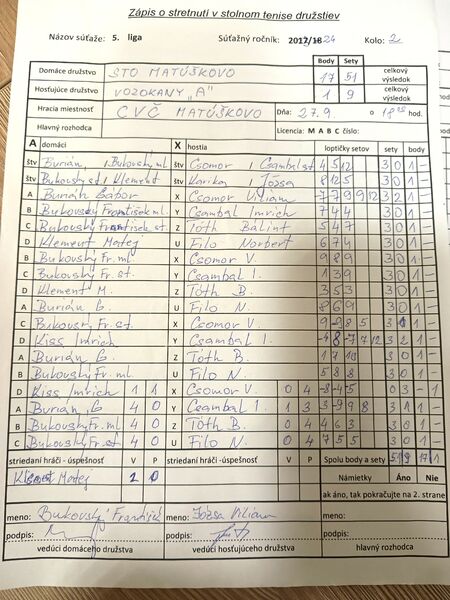 Zápis o stretnutí v stolnom tenise družstiev
Názov súťaže: 5. liga Súťažný ročník: 2017/18 24 Kolo: 2
Body Sety
Domáce družstvo STO MATÚŠKOVO 17 51 celkový výsledok
Hosťujúce družstvo VOZOKANY "A" 1 9 celkový výsledok
Hracia miestnosť CVČ MATÚŠKOVO Dňa: 27.9. o 18 hod.
Hlavný rozhodca Licencia: M A B C číslo:
A domáci X hostia loptičky setov sety body
štv Burián, Bukovský ml štv Csomor, Csambal st 4 5 12 3 0 1 -
štv Bukovský st, Klement štv Karika, Józsa 8 12 5 3 0 1 -
A Burián Gábor X Csomor Viliam 7 7 9 9 12 3 2 1 -
B Bukovský František ml. Y Csambal Imrich 7 4 4 3 0 1 -
C Bukovský František st. Z Tóth Bálint 5 4 7 3 0 1 -
D Klement Matej U Filo Norbert 6 7 4 3 0 1 -
B Bukovský Fr. ml X Csomor V. 9 8 9 3 0 1 -
C Bukovský Fr. st. Y Csambal I. 1 3 9 3 0 1 -
D Klement M. Z Tóth B. 3 5 3 3 0 1 -
A Burián G. U Filo N. 8 6 9 3 0 1 -
C Bukovský Fr. st. X Csomor V. 9 -8 8 5 3 1 1 -
D Kiss Imrich Y Csambal I. -4 8 -7 7 12 3 2 1 -
A Burián G. Z Tóth B. 1 7 10 3 0 1 -
B Bukovský Fr. ml U Filo N. 5 8 8 3 0 1 -
D Kiss Imrich 1 1 X Csomor V. 0 4 -8 -4 -5 0 3 - 1
A Burián G 4 0 Y Csambal I. 1 3 3 -9 9 8 3 1 1 -
B Bukovský Fr. ml 4 0 Z Tóth B. 0 4 4 6 3 3 0 1 -
C Bukovský Fr. st 4 0 U Filo N. 0 4 7 5 5 3 0 1 -
striedaní hráči - úspešnosť V P striedaní hráči - úspešnosť V P Spolu body a sety 51 9 17 1
Klement Matej 2 0 Námietky Áno Nie
ak áno, tak pokračujte na 2. strane
meno: Bukovský František meno: Józsa Viliam meno:
podpis: podpis: podpis:
vedúci domáceho družstva vedúci hosťujúceho družstva hlavný rozhodca